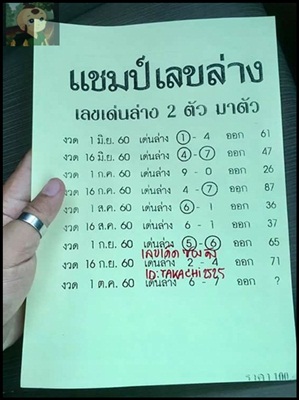 แชมป์เลขล่าง
เลขเด่นล่าง 2 ตัว มาตัว
งวด 1 มิ.ย. 60 เด่นล่าง 1 - 4 ออก 61
งวด 16 มิ.ย. 60 เด่นล่าง 4 - 7 ออก 47
งวด 1 ก.ค. 60 เด่นล่าง 9 - 0 ออก 26
งวด 16 ก.ค. 60 เด่นล่าง 4 - 7 ออก 87
งวด 1 ส.ค. 60 เด่นล่าง 6 - 1 ออก 36
งวด 16 ส.ค. 60 เด่นล่าง 6 - 1 ออก 37
งวด 1 ก.ย. 60 เด่นล่าง 5 - 6 ออก 65
เลขเด็ด ซองดัง
งวด 16 ก.ย. 60 เด่นล่าง 2 - 4 ออก 71
ID:TAKACHI2525
งวด 1 ต.ค. 60 เด่นล่าง 6 - 7 ออก ?
ราคา 100